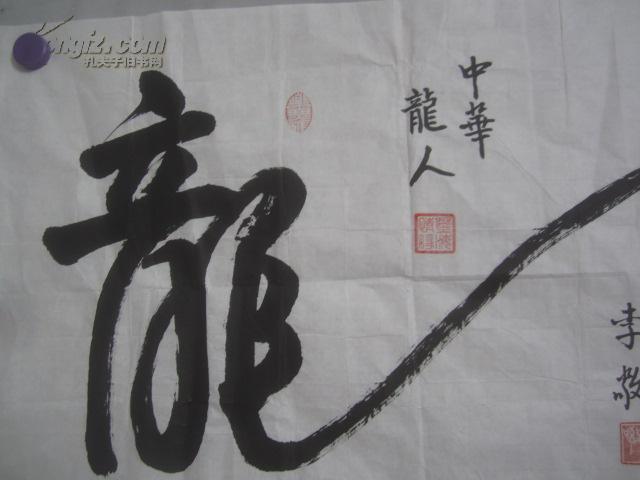 龍
中華
龍人
李敬
kongfz.com
孔夫子旧书网